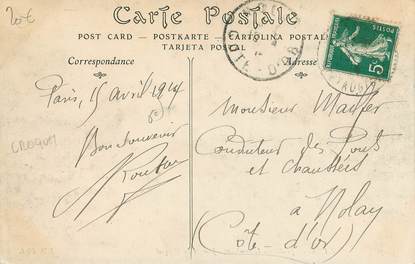 20€
Carte Postale
POST CARD - POSTKARTE - CARTOLINA POSTALE
TARJETA POSTAL
Correspondance
Adresse
CÔTE-D'OR
POSTES
5c
Paris, 15 avril 1914
Bon souvenir
CROQUIS
Monsieur
Conducteur des Ponts
et chaussées
à Nolay
(Côte-d'or)